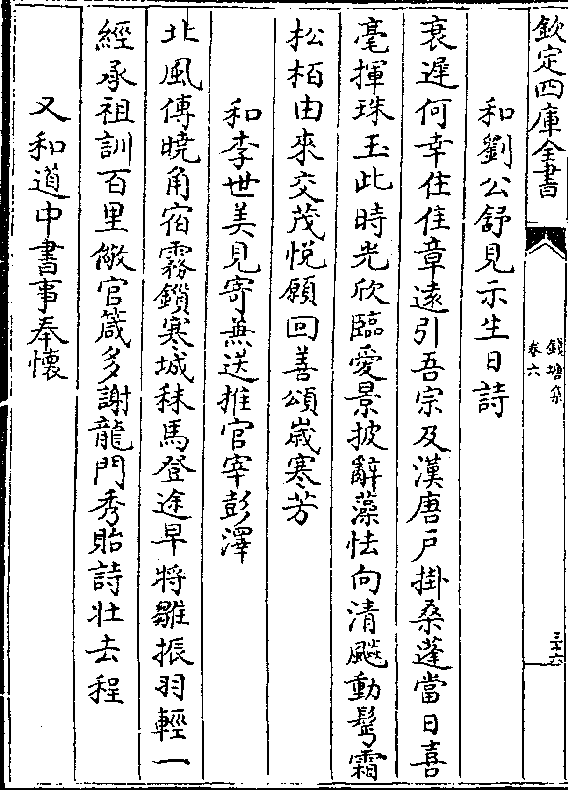 欽定四庫全書
錢塘集
卷六
三十六
和劉公舒見示生日詩
衰遲何幸住佳章遠引吾宗及漢唐戶掛桑蓬當日喜
毫揮珠玉此時光欣臨愛景披辭藻怯向清飈動鬂霜
松栢由來交茂悅願回善頌嵗寒芳
和李世美見寄兼送推官宰彭澤
北風傳曉角宿霧鎖寒城秣馬登途早將雛振羽輕一
經承祖訓百里儆官箴多謝龍門秀貽詩壯去程
又和道中書事奉懷